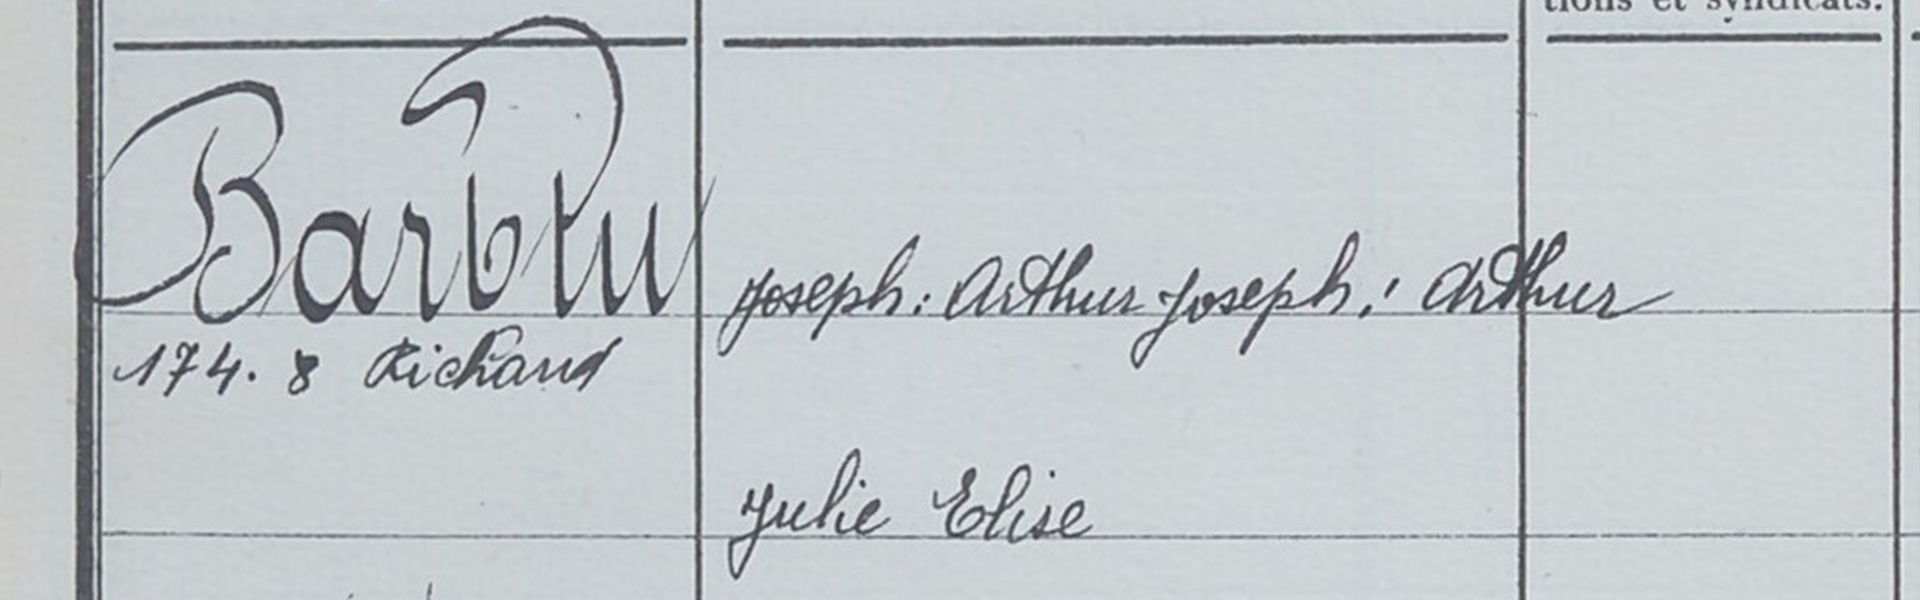 tions et syndicats.
Joseph: Arthur Joseph: Arthur
174. 8 Richard
Julie Elise